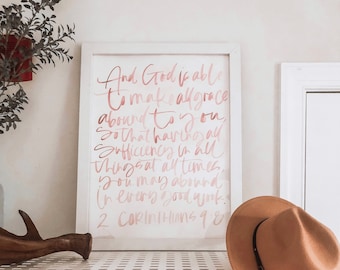 And God is able
to make all grace
abound to you
So that having all
Sufficiency in all
things at all times
you may abound
In every good work.
2 Corinthians 9:8